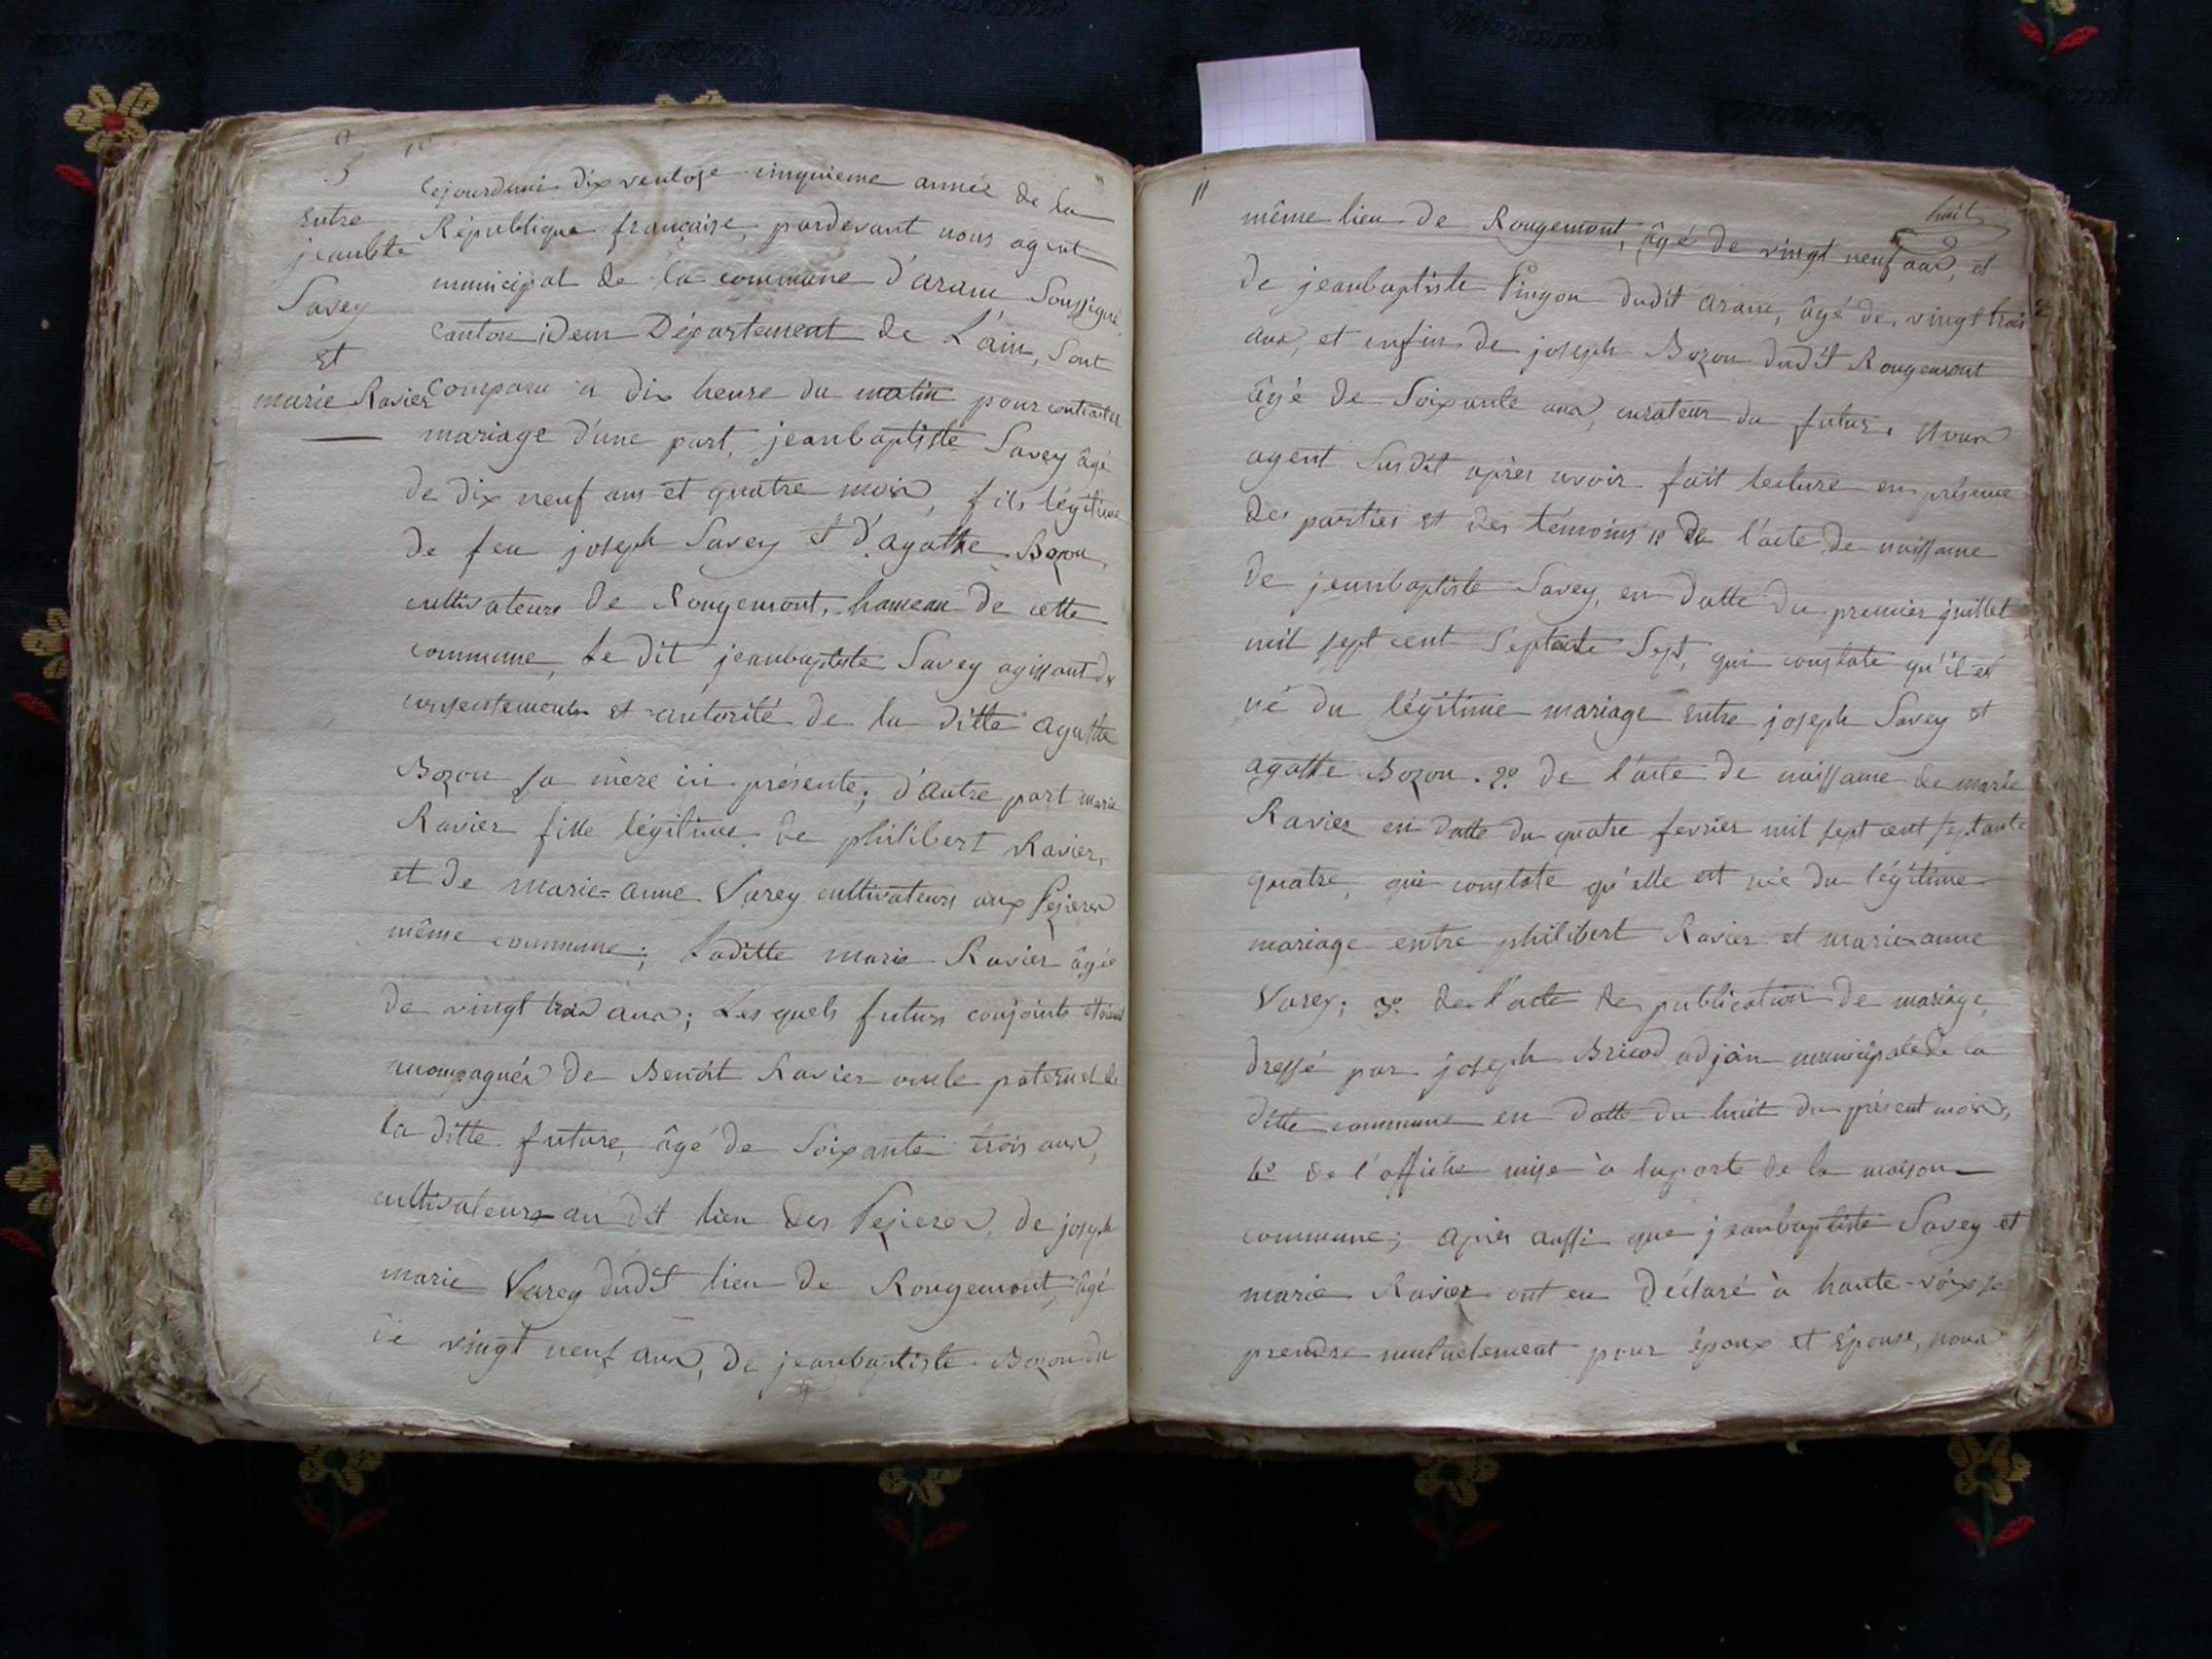 5
Entre
jeanbte
Savey
Et
marie Ravier
Cejourdhui dix ventose cinquieme année de la
République française, pardevant nous agent
municipal de la commune d'arane Soussigné
Canton idem Département de L'ain, Sont
Comparu a dix heure du matin pour contracter
mariage d'une part, jeanbaptiste Savey âgé
de dix neuf ans et quatre mois, fils légitime
de feu joseph Savey et d'agathe Bozon,
cultivateurs de Rougemont, hameau de cette
commune, Le dit jeanbaptiste Savey agissant du
consentement et autorité de la ditte agathe
Bozon sa mère ici présente; d'autre part marie
Ravier fille légitime de philibert Ravier,
et de marie-anne Varey cultivateurs aux
même commune; Laditte marie Ravier âgée
de vingt trois ans; Les quels futurs conjoints étoient
accompagnés de Benoit Ravier oncle paternel de
la ditte future, âgé de Soixante trois ans,
cultivateurs au dit lieu des, de joseph
marie Varey dudit lieu de Rougemont, âgé
de vingt neuf ans, de jeanbaptiste Bozon du
11
huit
même lieu de Rougemont, âgé de vingt neuf ans, et
de jeanbaptiste Pingon dudit arane, âgé de vingt trois
ans, et enfin de joseph Bozon dudit Rougemont
âgé de Soixante ans, curateur du futur. Nous
agent Susdit après avoir fait lecture en présence
des parties et des témoins 1º de l'acte de naissance
de jeanbaptiste Savey, en datte du premier juillet
mil sept cent Septante Sept, qui constate qu'il est
né du légitime mariage entre joseph Savey et
agathe Bozon. 2º de l'acte de naissance de marie
Ravier en datte du quatre fevrier mil sept cent septante
quatre, qui constate qu'elle est née du légitime
mariage entre philibert Ravier et marie-anne
Varey; 3º de l'acte de publication de mariage,
dressé par joseph Bricod adjoin municipale de la
ditte commune en datte du huit du présent mois,
4º de l'affiche mise à laporte de la maison
commune; après aussi que jeanbaptiste Savey et
marie Ravier ont eu déclaré à haute-voix se
prendre mutuelement pour époux et épouse, nous